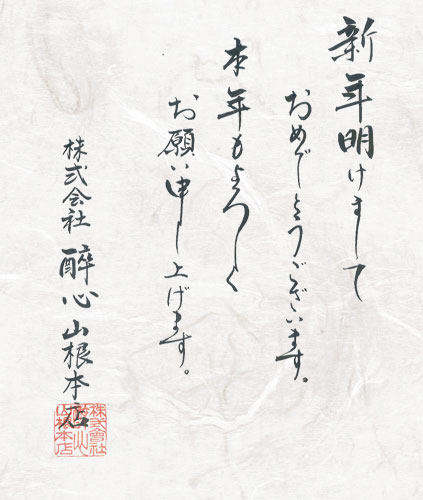 新年明けまして
おめでとうございます。
本年もよろしく
お願い申し上げます。
株式会社 醉心山根本店
株式會社
醉心
山根本店